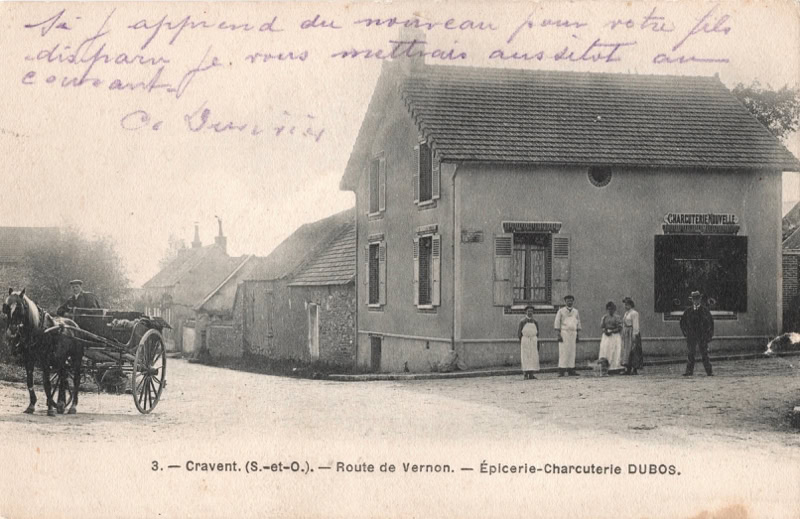 Si j apprend du nouveau pour votre fils
disparu je vous mettrais aussitot au
courant.
CHARCUTERIE NOUVELLE
3. — Cravent. (S.-et-O.). — Route de Vernon. — Épicerie-Charcuterie DUBOS.